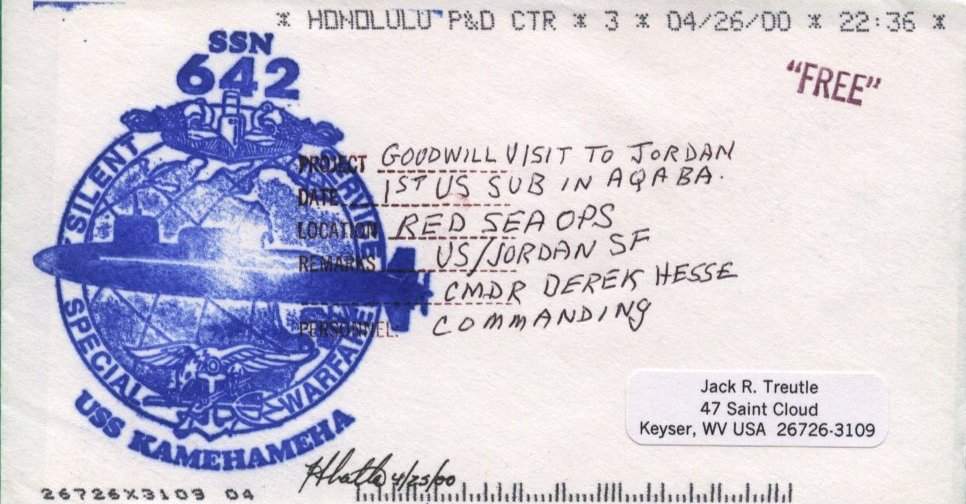 * HONOLULU P&D CTR * 3 * 04/26/00 * 22:36 *
SSN
642
"FREE"
SILENT SERVICE
SPECIAL WARFARE
USS KAMEHAMEHA
PROJECT GOODWILL VISIT TO JORDAN
DATE 1ST US SUB IN AQABA.
LOCATION RED SEA OPS
REMARKS US/JORDAN SF
CMDR DEREK HESSE
PERSONNEL: COMMANDING
Jack R. Treutle
47 Saint Cloud
Keyser, WV USA 26726-3109
4/25/00
26726X3109 04